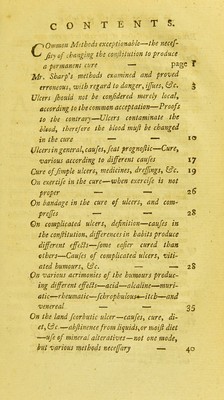 CONTENTS.
COmmon Methods exceptionable—the neces-
sity of changing the constitution to produce
a permanent cure — page 1
Mr. Sharp's methods examined and proved
erroneous, with regard to danger, issues, &c. 3
Ulcers should not be considered merely local,
according to the common acceptation—Proofs
to the contrary—Ulcers contaminate the
blood, therefore the blood must be changed
in the cure — — 10
Ulcers in general, causes, seat prognostic—Cure,
various according to different causes 17
Cure of simple ulcers, medicines, dressings, &c. 19
On exercise in the cure—when exercise is not
proper — — — 26
On bandage in the cure of ulcers, and com-
presses — — 28
On complicated ulcers, definition—causes in
the constitution, differences in habits produce
different effects—some easier cured than
others—Causes of complicated ulcers, viti-
ated humours, &c. — — 28
On various acrimonies of the humours produc-
ing different effects—acid—alcaline—muri-
atic—rheumatic—schrophulous—itch—and
venereal — — 35
On the land scorbutic ulcer—causes, cure, di-
et, &c.—abstinence from liquids, or moist diet
—use of mineral alteratives—not one mode,
but various methods necessary — 40